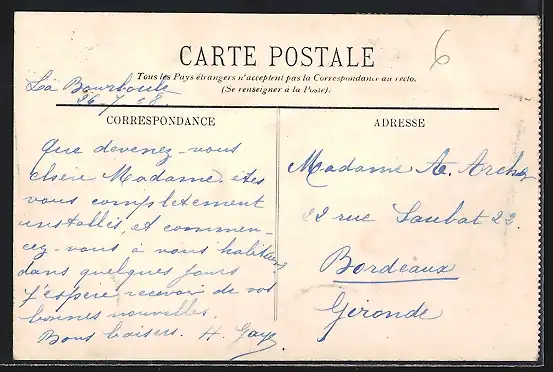 6
CARTE POSTALE
Tous les Pays étrangers n'acceptent pas la Correspondance au recto.
(Se renseigner à la Poste).
La Bourboule
26/7 08.
CORRESPONDANCE
Que devenez-vous
chère Madame, êtes
vous complètement
installés, et commen-
cez-vous à vous habituer
dans quelques jours
j'espère recevoir de vos
bonnes nouvelles.
Bons baisers. H. Gaye
ADRESSE
Madame A. Archez
22 rue Saubat 22
Bordeaux
Gironde